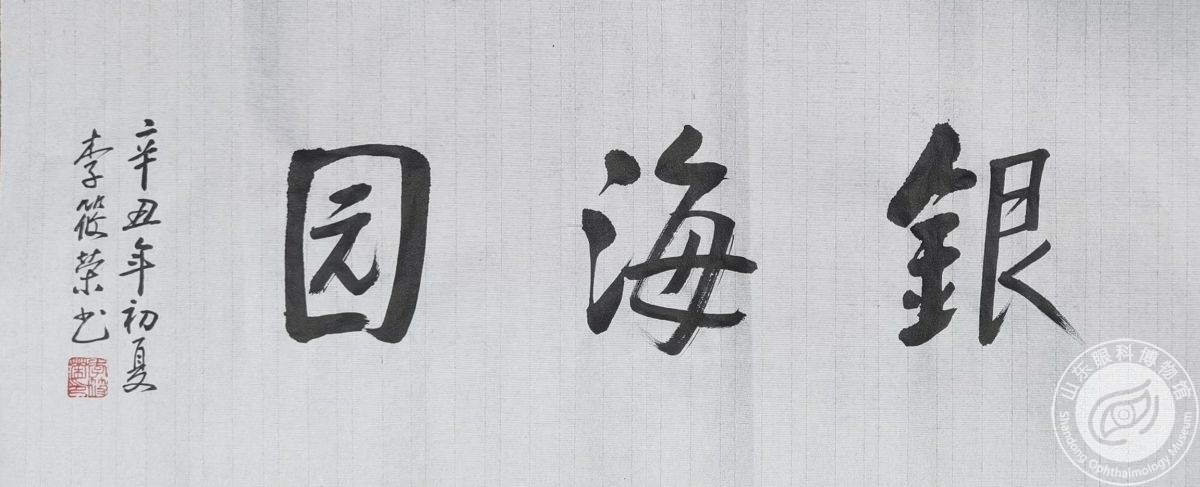 銀海园
辛丑年初夏
李筱荣书
山东眼科博物馆
Shandong Ophthalmology Museum